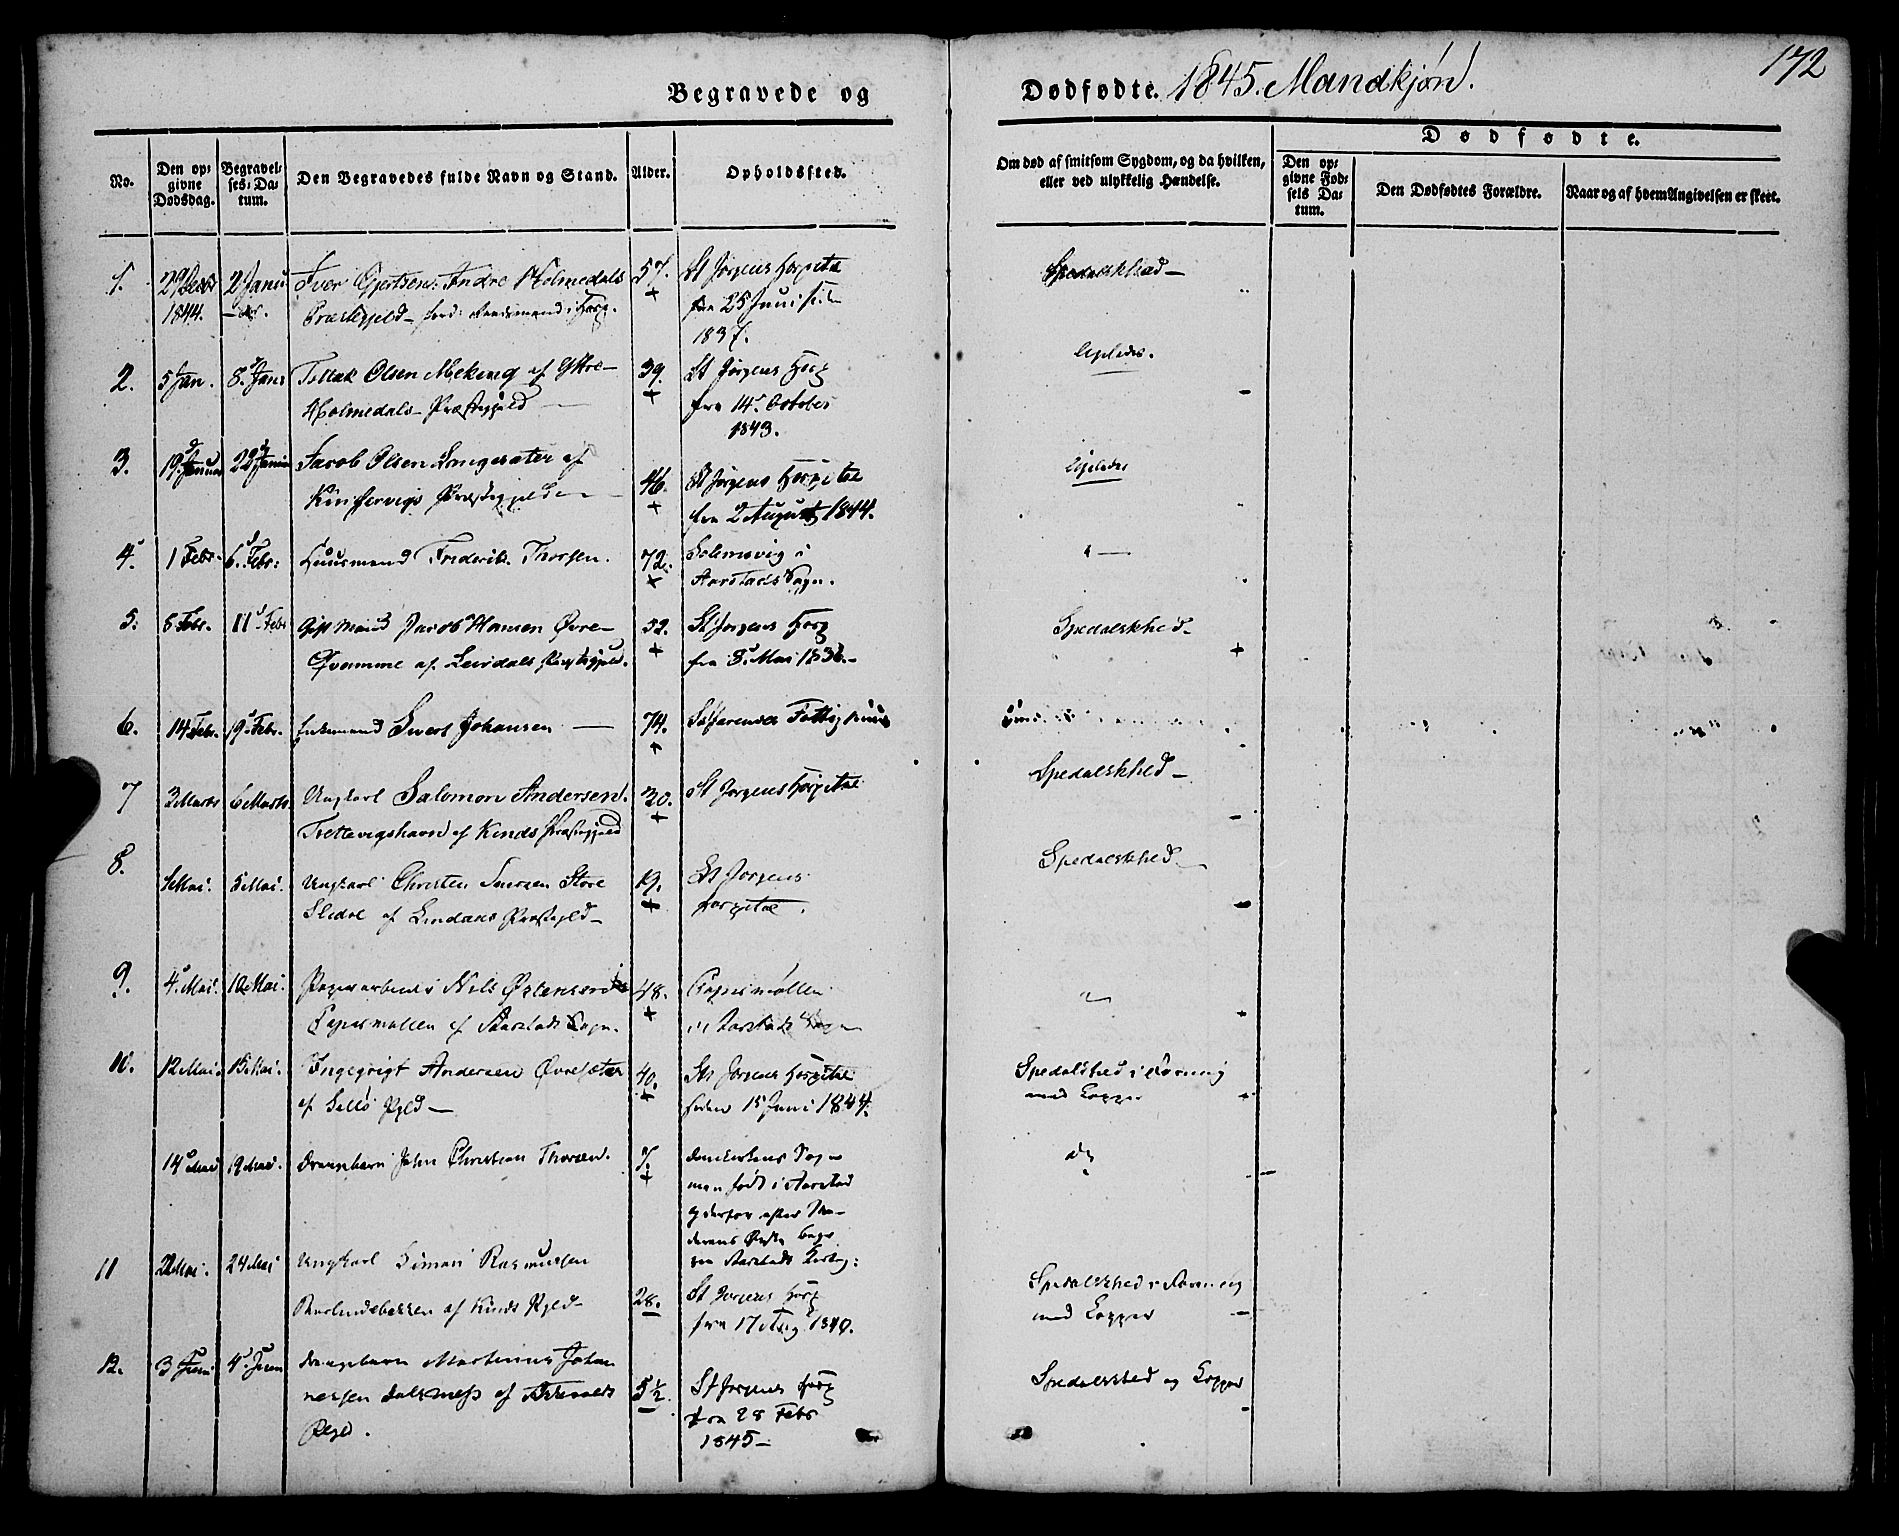 172
Begravede og Dødfødte. 1845. Mandkjøn.
No.
Den opgivne Dødsdag.
Begravelses-Datum.
Den Begravedes fulde Navn og Stand.
Alder.
Opholdssted.
Om død af smitsom Sygdom, og da hvilken,
eller ved ulykkelig Hændelse.
Dødfødte.
Den opgivne Fødsels Datum.
Den Dødfødtes Forældre.
Naar og af hvem Angivelsen er skeet.
1. 29 1844. 2 Janu Iver Gjertsen Indre Holmedals 57. St Jørgens Hospital Spedalskhed
Præstegjeld i Hosp. fra 25 Juni
1837.
2. 5 Jan. 8 Jan Olsen af Yttre 39. St Jørgens Hosp Ligeledes.
Holmedals Præstegjeld fra 14 October
1843.
3. 19 Januar 22 Januar Jacob Olsen af 46. St Jørgens Hospital Ligeledes
Kinservigs Præstegjeld fra 2 August 1844.
4. 1 Febr. 6. Febr. Huusmand Frederik Thorsen. 72. Solemsvig i "
Aarstads Sogn.
5. 8 Febr. 11 Febr Gift Mand Jacob Hansen Øvre 52. St Jørgens Hosp Spedalskhed
Qvamme af Leirdals Præstegjeld. fra 8 Mai 1836.
6. 14 Febr. 19 Febr. Enkemand Sivert Johansen 74. Fattighuus
7 3 Marts 6 Marts Ungkarl Salomon Andersen 30. St Jørgens Hospital Spedalskhed
Trettevigshavn af Kinds Præstegjeld
8. 1 Mai. 5 Mai. Ungkarl Christen Store 19. St Jørgens Spedalskhed
af Lindaas Præstegjeld Hospital.
9. 4 Mai. 10 Mai. Papirarbeider Nils Østensen 48. Papirmøllen "
Papirmøllen af Aarstads Sogn. i Aarstads Sogn
10. 12 Mai. 15 Mai. Ingebrigt Andersen Øvresæter 40. St Jørgens Hospital Spedalskhed i Forening
af Selló Pgld siden 15 Juni 1844. med Kopper
14 Mai 19 Mai. Drengebarn John Christian Thorsen. 7. Domkirkens Sogn
men født i Aarstad
og derfor efter
derens Ønske begr.
paa Aarstads Kirkeg:
11 22 Mai. 24 Mai Ungkarl Simon Rasmussen Spedalskhed i Forening
af Kinds Pgld 28. St Jørgens Hosp med Kopper
fra 17 Aug 1840.
12. 3 Juni 4 Juni Drengebarn Martinus Johan
nessen af Askevolds 5 1/2. St Jørgens Hosp Spedalskhed og Kopper
Pgld. fra 28 Febr
1845